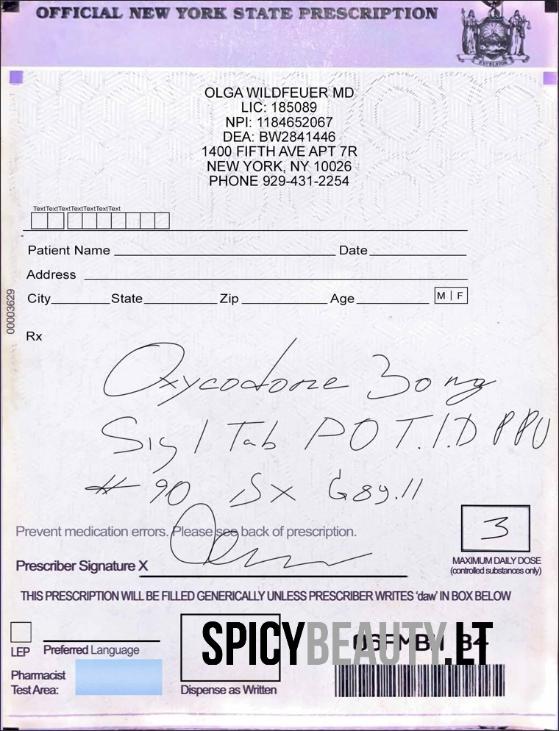 OFFICIAL NEW YORK STATE PRESCRIPTION
OLGA WILDFEUER MD
LIC: 185089
NPI: 1184652067
DEA: BW2841446
1400 FIFTH AVE APT 7R
NEW YORK, NY 10026
PHONE 929-431-2254
TextTextTextTextTextTextText
Patient Name Date
Address
City State Zip Age M F
00003629
Rx
Oxycodone 30 mg
Sig 1 Tab PO T.I.D
# 90 DX G89.11
Prevent medication errors. Please see back of prescription.
3
Prescriber Signature X
MAXIMUM DAILY DOSE
(controlled substances only)
THIS PRESCRIPTION WILL BE FILLED GENERICALLY UNLESS PRESCRIBER WRITES 'daw' IN BOX BELOW
SPICYBEAUTY.LT
LEP Preferred Language
Pharmacist
Test Area:
Dispense as Written